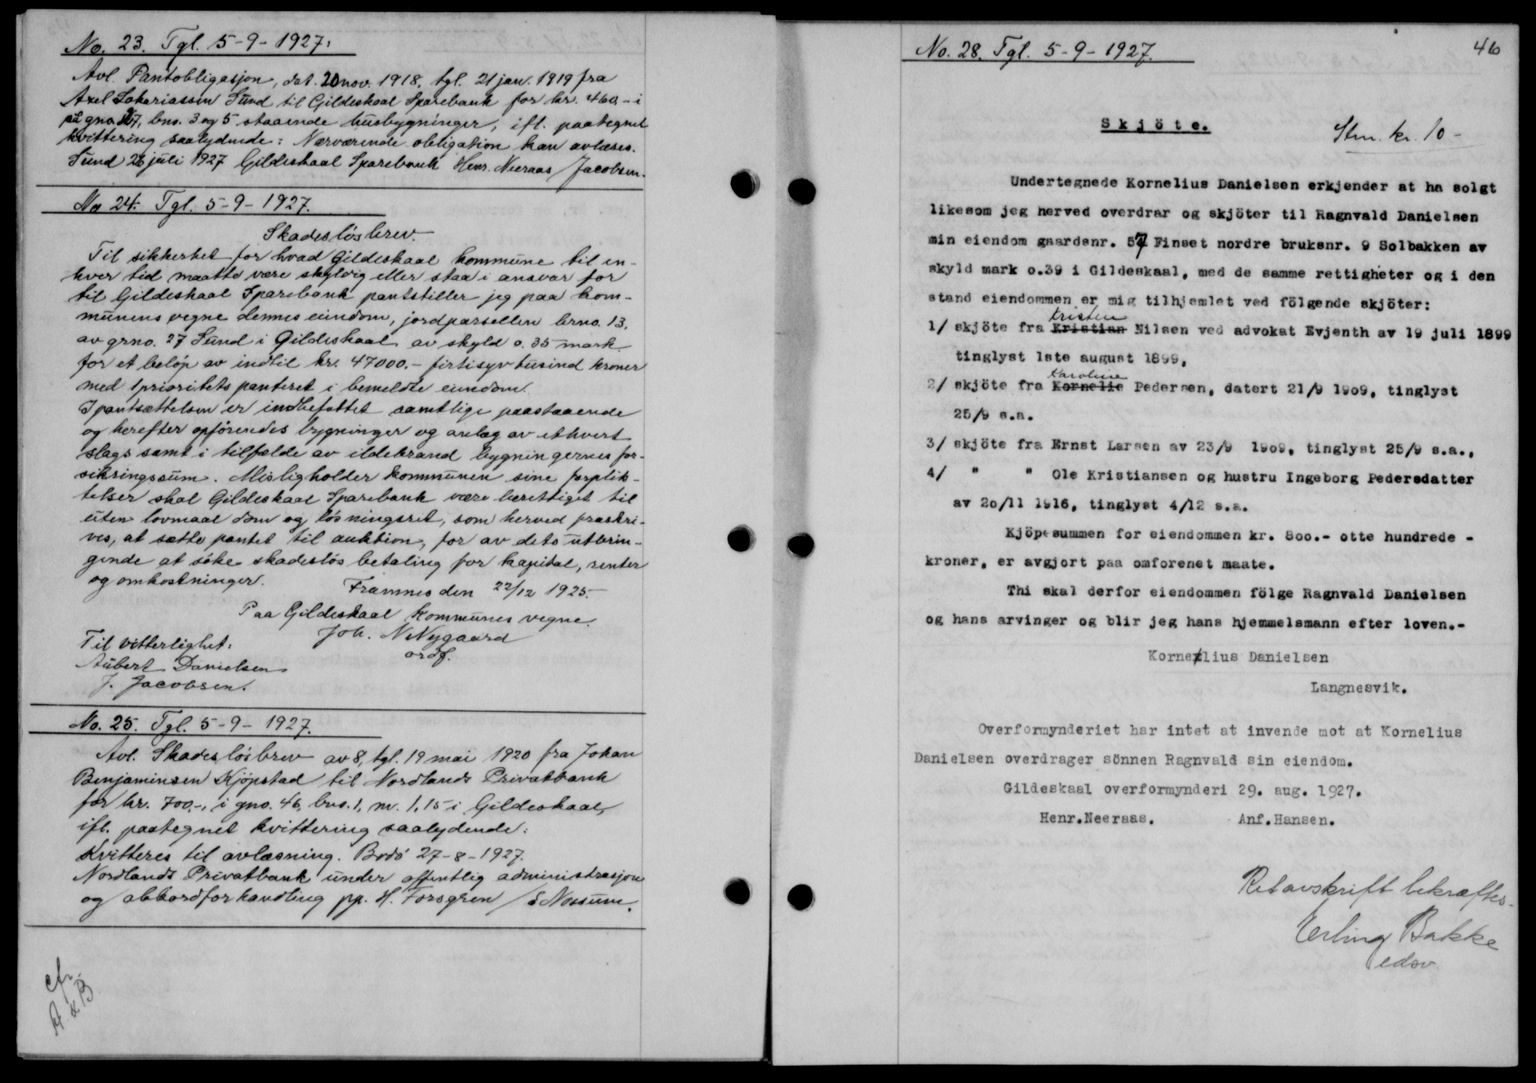 No. 23. Tgl. 5-9-1927.
Avl. Pantobligasjon, dat. 20 nov. 1918, tgl. 21 jan. 1919 fra
Axel Sakariassen Sund til Gildeskaal Sparebank for kr. 460.- i
paa gno. 27, bno. 3 og 5 staaende husbygninger, ifl. paategnet
kvittering saalydende: Nærværende obligation kan avlæses.
Sund 26 juli 1927 Gildeskaal Sparebank Henr. Neeraas / Jacobsen.
No 24. Tgl. 5-9-1927.
Skadesløsbrev.
Til sikkerhet for hvad Gildeskaal kommune til en-
hver tid maatte være skyldig eller staa i ansvar for
til Gildeskaal Sparebank pantstiller jeg paa kom-
munens vegne dennes eiendom, jordparsellen brno. 13.
av grno. 27 Sund i Gildeskaal av skyld 0.35 mark
for et beløp av indtil kr. 47000.- firtisyv tusind kroner
med 1 prioritets panteret i bemeldte eiendom.
I pantsættelsen er indbefattet samtlige paastaaende
og herefter opførendes bygninger og anlæg av ethvert
slags samt i tilfælde av ildebrand bygningernes for-
sikringssum. Misligholder kommunen sine forplik-
telser skal Gildeskaal Sparebank være berettiget til
uten lovmaal dom og løsningsret, som herved fraskri-
ves, at sætte pantet til auktion, for av dets utbrin-
gende at søke skadesløs betaling for kapital, renter
og omkostninger. Framnes den 22/12 1925.-
Paa Gildeskaal kommunes vegne.
Joh. N Nygaard
ordf.
Til vitterlighet:
Aubert Danielsen
J. Jacobsen.
No. 25. Tgl. 5-9-1927.
Avl. Skadesløsbrev av 8, tgl. 19 mai 1920 fra Johan
Benjaminsen Kjøpstad til Nordlands Privatbank
for kr. 700.-, i gno. 46, bno. 1, m. 1,15 i Gildeskaal,
ifl. paategnet kvittering saalydende:
Kvitteres til avlæsning. Bodø 27-8-1927.
Nordlands Privatbank under offentlig administrasjon
og akkordforhandling pp. H. Forsgren / S Nossum.
cfr.
A & B
No. 28. Tgl. 5-9-1927.
46
Skjöte.
Stm. kr. 10-
Undertegnede Kornelius Danielsen erkjender at ha solgt
likesom jeg herved overdrar og skjöter til Ragnvald Danielsen
min eiendom gaardsnr. 57 Finset nordre bruksnr. 9 Solbakken av
skyld mark 0.39 i Gildeskaal, med de samme rettigheter og i den
stand eiendommen er mig tilhjemlet ved fölgende skjöter:
Kristen
1/ skjöte fra Kristian Nilsen ved advokat Evjenth av 19 juli 1899
tinglyst 1ste august 1899,
Karoline
2/ skjöte fra Kornelie Pedersen, datert 21/9 1909, tinglyst
25/9 s.a.
3/ skjöte fra Ernst Larsen av 23/9 1909, tinglyst 25/9 s.a.,
4/ " " Ole Kristiansen og hustru Ingeborg Pedersdatter
av 20/11 1916, tinglyst 4/12 s.a.
Kjöpesummen for eiendommen kr. 800.- otte hundrede -
kroner, er avgjort paa omforenet maate.
Thi skal derfor eiendommen fölge Ragnvald Danielsen
og hans arvinger og blir jeg hans hjemmelsmann efter loven.-
Kornelius Danielsen
Langnesvik.
Overformynderiet har intet at invende mot at Kornelius
Danielsen overdrager sönnen Ragnvald sin eiendom.
Gildeskaal overformynderi 29. aug. 1927.
Henr.Neeraas. Anf.Hansen.
Ret avskrift bekræftes.
Erling Bakke
edsv.